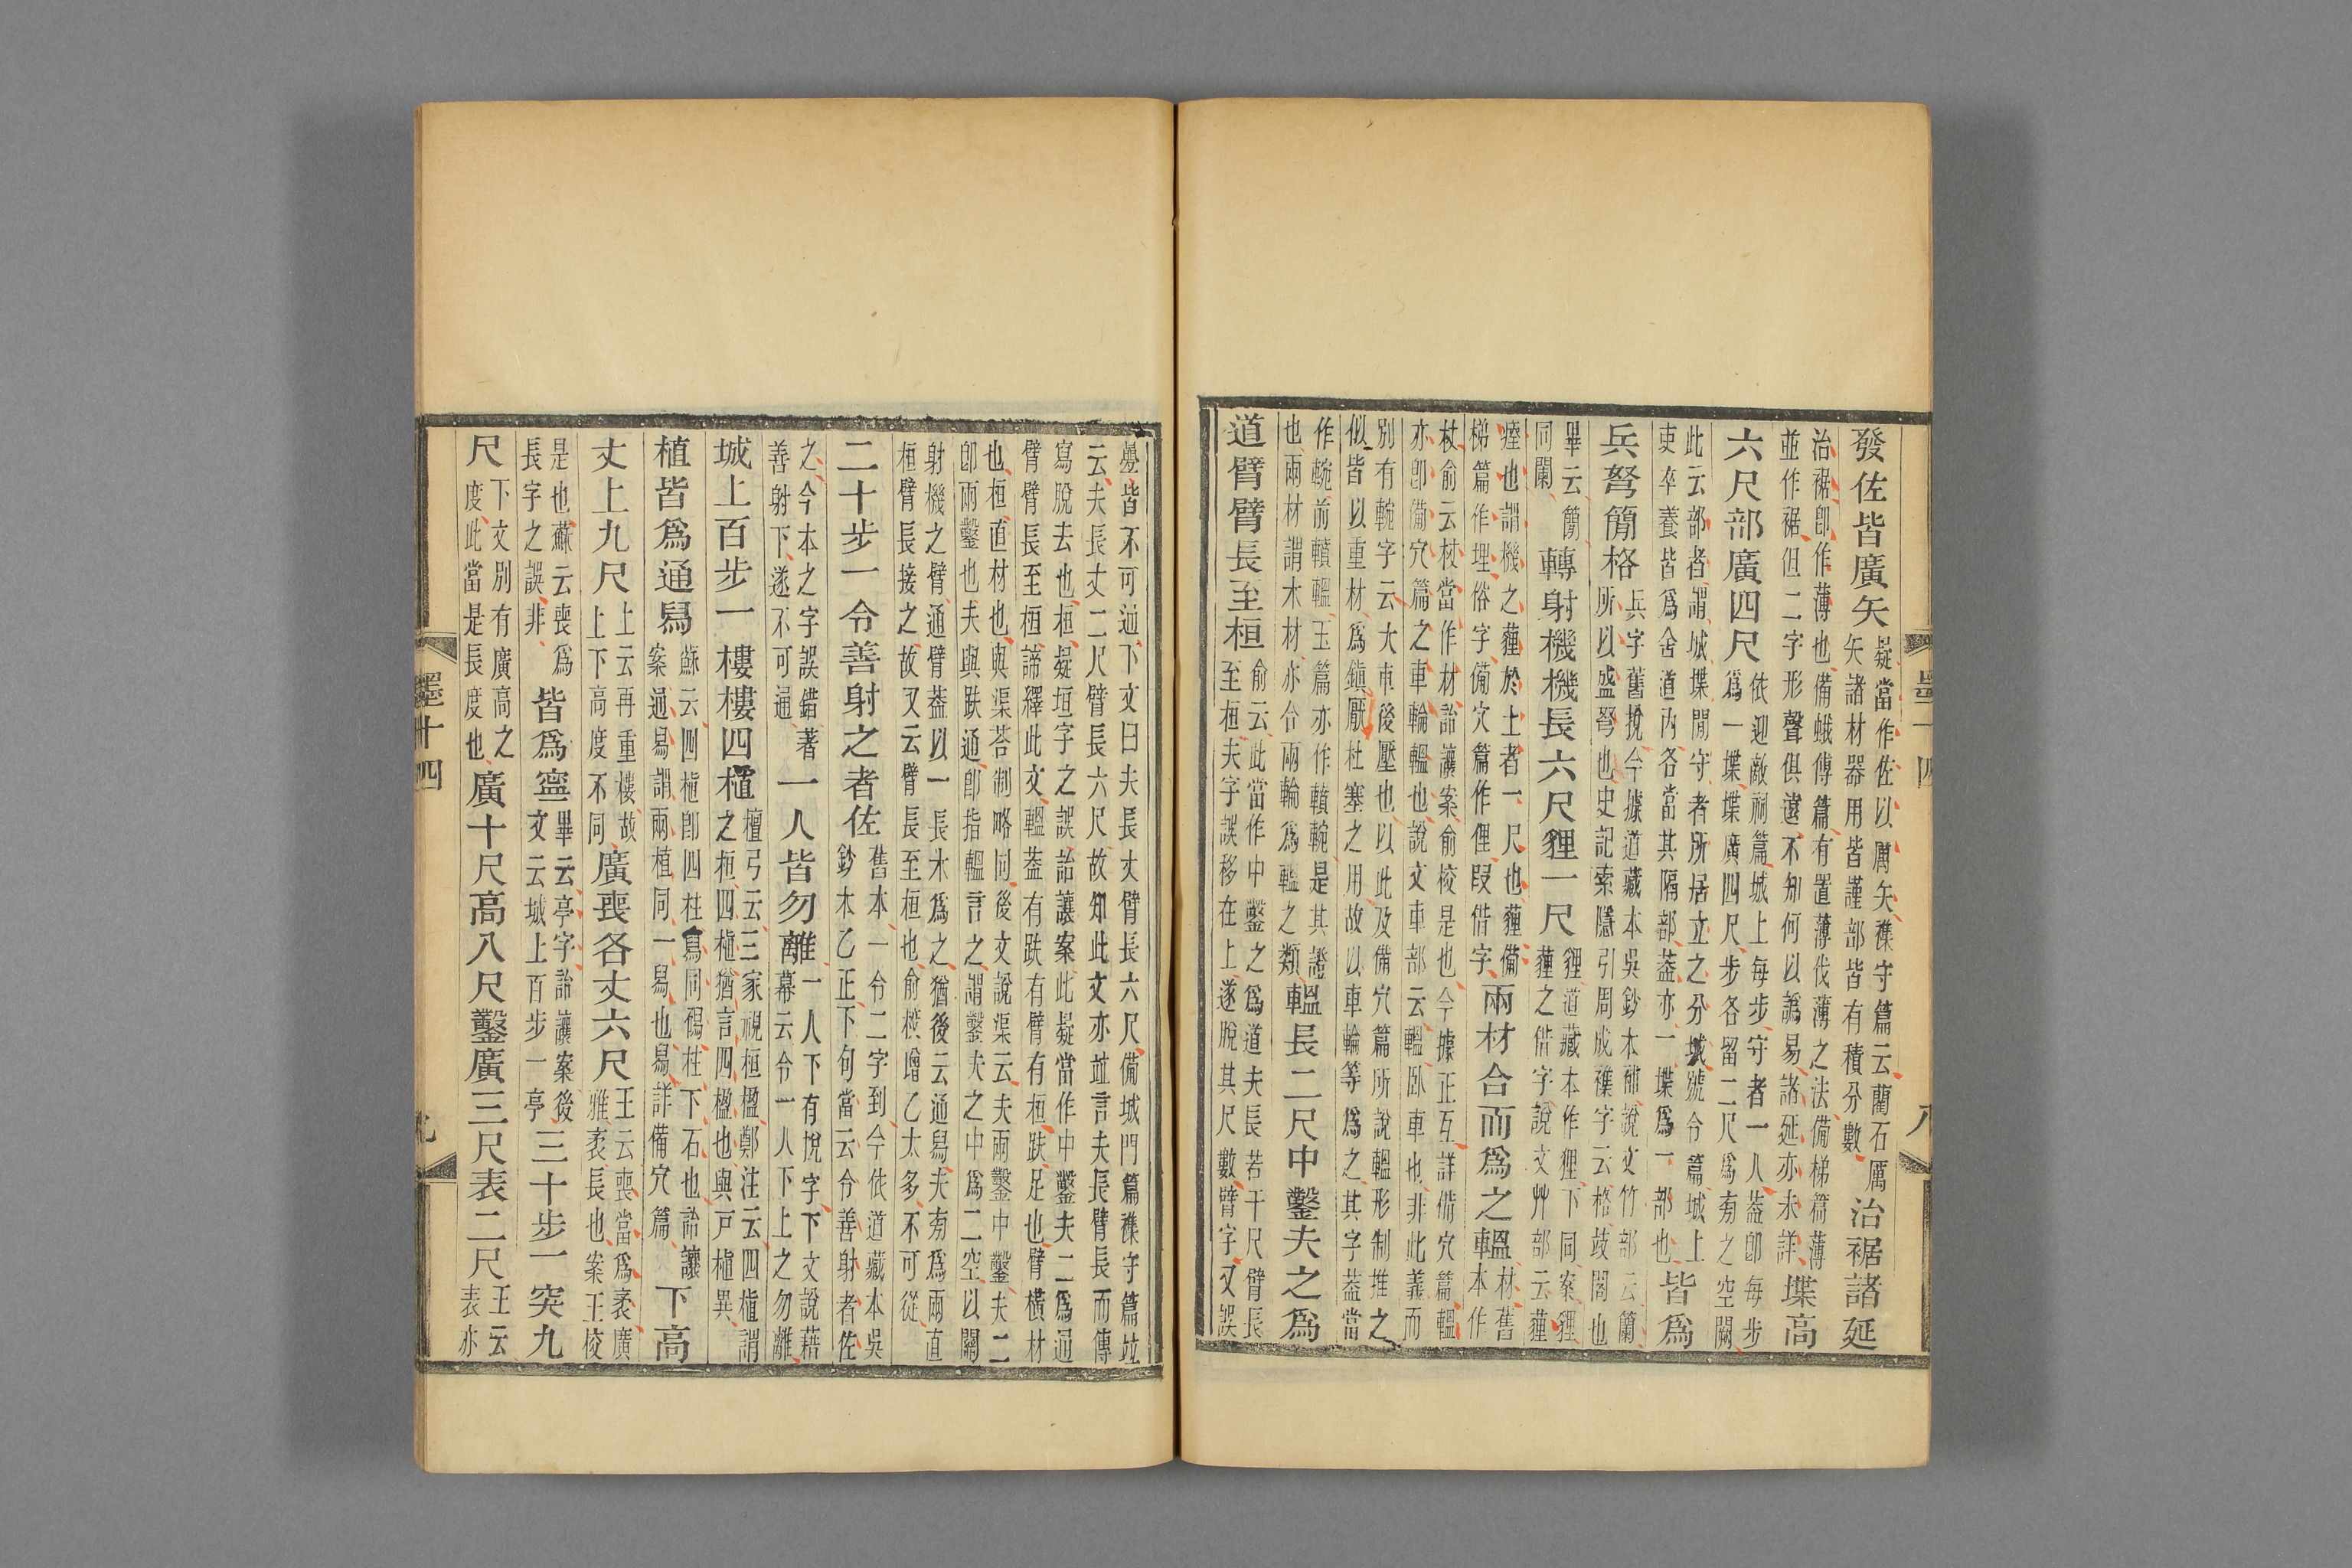 發佐皆廣矢疑當作佐以厲矢襍守篇云藺石厲
矢諸材器用皆謹部皆有積分數治裾諸延
治裾卽作薄也備蛾傅篇有置薄伐薄之法備梯篇薄
並作裾但二字形聲俱遠不知何以譌易諸延亦未詳堞高
六尺部廣四尺依迎敵祠篇城上每步守者一人葢卽每步
爲一堞堞廣四尺步各留二尺爲旁之空闕
此云部者謂城堞閒守者所居立之分域號令篇城上
吏卒養皆爲舍道內各當其隔部葢亦一堞爲一部也皆爲
兵弩簡格兵字舊挩今據道藏本吳鈔本補說文竹部云簡
所以盛弩也史記索隱引周成襍字云格歧閣也
畢云簡
同闌轉射機機長六尺貍一尺貍道藏本作狸下同案貍
薶之借字說文艸部云薶
瘞也謂機之薶於土者一尺也薶備
梯篇作埋俗字備穴篇作俚叚借字兩材合而爲之轀材舊
本作
杖俞云杖當作材詒讓案俞校是也今據正互詳備穴篇轀
亦卽備穴篇之車輪轀也說文車部云轀臥車也非此義而
別有輐字云大車後壓也以此及備穴篇所說轀形制推之
似皆以重材爲鎮厭杜塞之用故以車輪等爲之其字葢當
作輐前轒轀玉篇亦作轒輐是其證
也兩材謂木材亦合兩輪爲轀之類轀長二尺中鑿夫之爲
道臂臂長至桓俞云此當作中鑿之爲道夫長若干尺臂長
至桓夫字誤移在上遂脫其尺數臂字又誤
㬪皆不可通下文曰夫長丈臂長六尺備城門篇襍守篇竝
云夫長丈二尺臂長六尺故知此文亦竝言夫長臂長而傳
寫脫去也桓疑垣字之誤詒讓案此疑當作中鑿夫二爲通
臂臂長至桓諦繹此文轀葢有趺有臂有桓趺足也臂橫材
也桓直材也與渠荅制略同後文說渠云夫兩鑿中鑿夫二
卽兩鑿也夫與趺通卽指轀言之謂鑿夫之中爲二空以關
射機之臂通臂葢以一長木爲之猶後云通舄夫旁爲兩直
桓臂長接之故又云臂長至桓也俞校增乙太多不可從
二十步一令善射之者佐舊本一令二字到今依道藏本吳
鈔本乙正下句當云令善射者佐
之今本之字誤錯著
善射下遂不可通一人皆勿離一人下有挩字下文說藉
幕云令一人下上之勿離
城上百步一樓樓四植檀弓云三家視桓楹鄭注云四植謂
之桓四植猶言四楹也與戸植異
植皆爲通舄蘇云四植卽四柱舄同磶柱下石也詒讓
案通舄謂兩植同一舄也舄詳備穴篇下高
丈上九尺上云再重樓故
上下高度不同廣喪各丈六尺王云喪當爲袤廣
雅袤長也案王校
是也蘇云喪爲
長字之誤非皆爲寧畢云亭字詒讓案後
文云城上百步一亭三十步一突九
尺下文別有廣高之
度此當是長度也廣十尺高八尺鑿廣三尺表二尺王云
表亦
墨十四